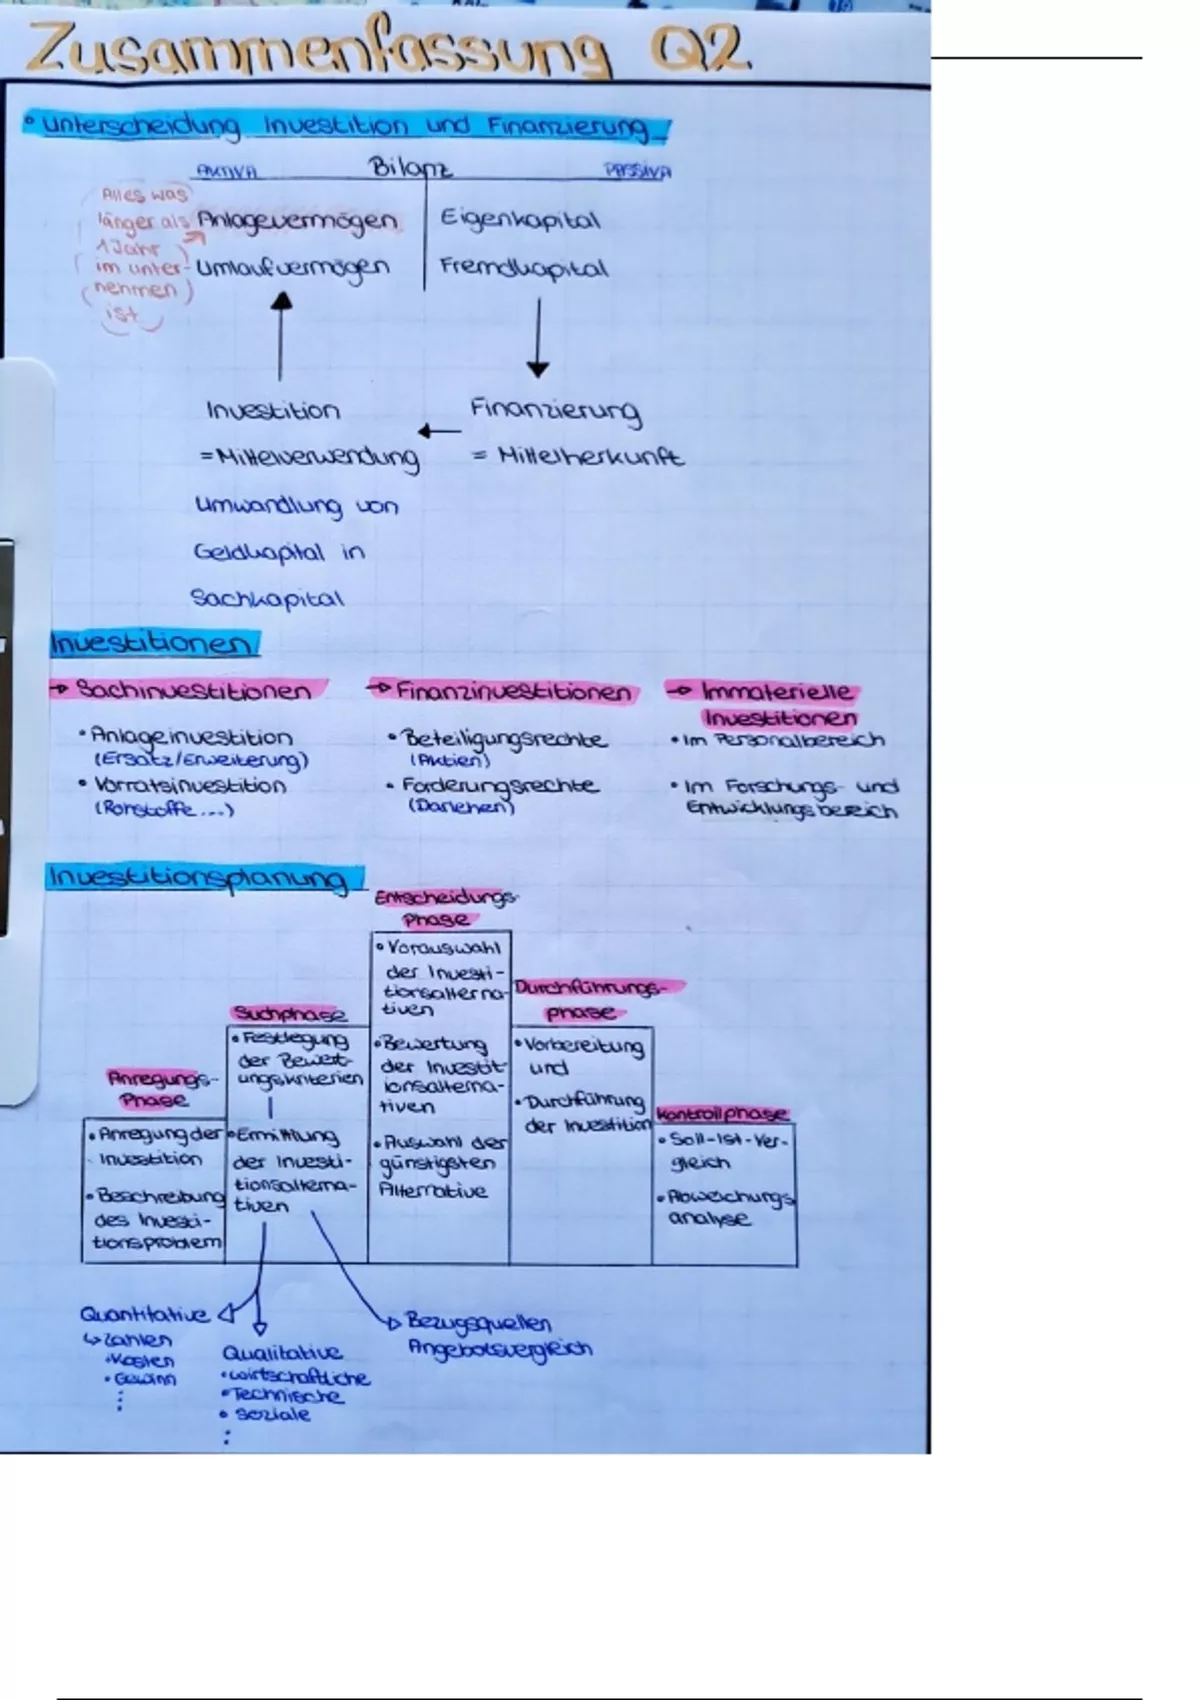 Zusammenfassung Q2
• Unterscheidung Investition und Finanzierung
AKTIVA Bilanz PASSIVA
Alles was
länger als
1 Jahr
im unter-
nehmen
ist
Anlagevermögen
Umlaufvermögen
Eigenkapital
Fremdkapital
Investition
= Mittelverwendung
Umwandlung von
Geldkapital in
Sachkapital
Finanzierung
= Mittelherkunft
Investitionen
→ Sachinvestitionen
• Anlageinvestition
(Ersatz/Erweiterung)
• Vorratsinvestition
(Rohstoffe...)
→ Finanzinvestitionen
• Beteiligungsrechte
(Aktien)
• Forderungsrechte
(Darlehen)
→ Immaterielle
Investitionen
• Im Personalbereich
• Im Forschungs- und
Entwicklungsbereich
Investitionsplanung
Anregungs-
Phase
• Anregung der
Investition
• Beschreibung
des Investi-
tionsproblem
Suchphase
• Festlegung
der Bewert-
ungskriterien
• Ermittlung
der Investi-
tionsalterna-
tiven
Entscheidungs-
Phase
• Vorauswahl
der Investi-
tionsalterna-
tiven
• Bewertung
der Investit-
ionsalterna-
tiven
• Auswahl der
günstigsten
Alternative
Durchführungs-
phase
• Vorbereitung
und
• Durchführung
der Investition
Kontrollphase
• Soll-Ist-Ver-
gleich
• Abweichungs
analyse
Quantitative
↳ Zahlen
• Kosten
• Gewinn
⋮
Qualitative
• wirtschaftliche
• Technische
• Soziale
⋮
Bezugsquellen
Angebotsvergleich